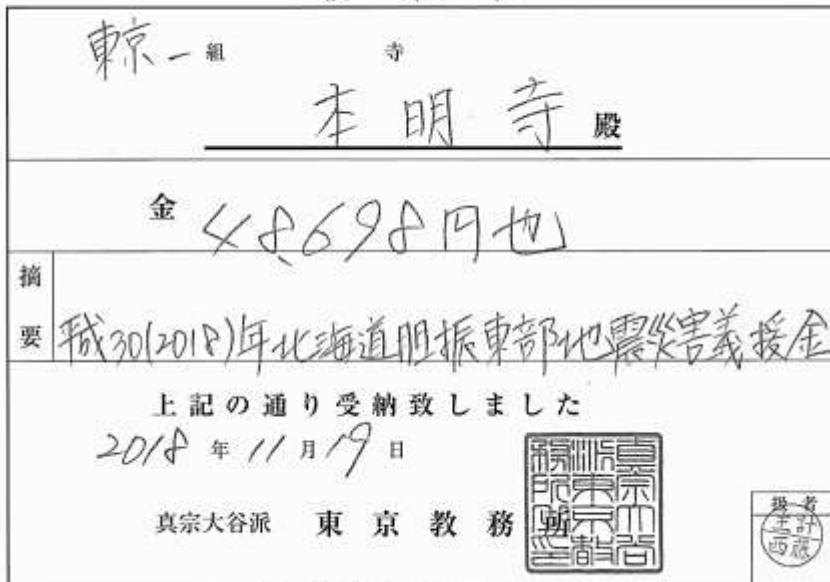 東京一組 寺
本明寺殿
金 48,698円也
摘要 平成30(2018)年北海道胆振東部地震災害義援金
上記の通り受納致しました
2018年11月19日
真宗大谷派 東京教務所
真宗大谷派東京教務所之印
扱者
主計
西蔵